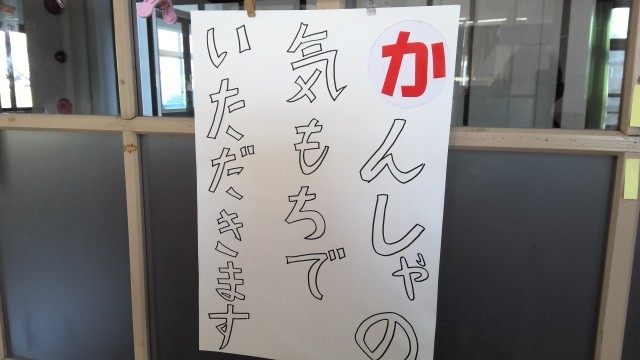 かんしゃの
気もちで
いただきます